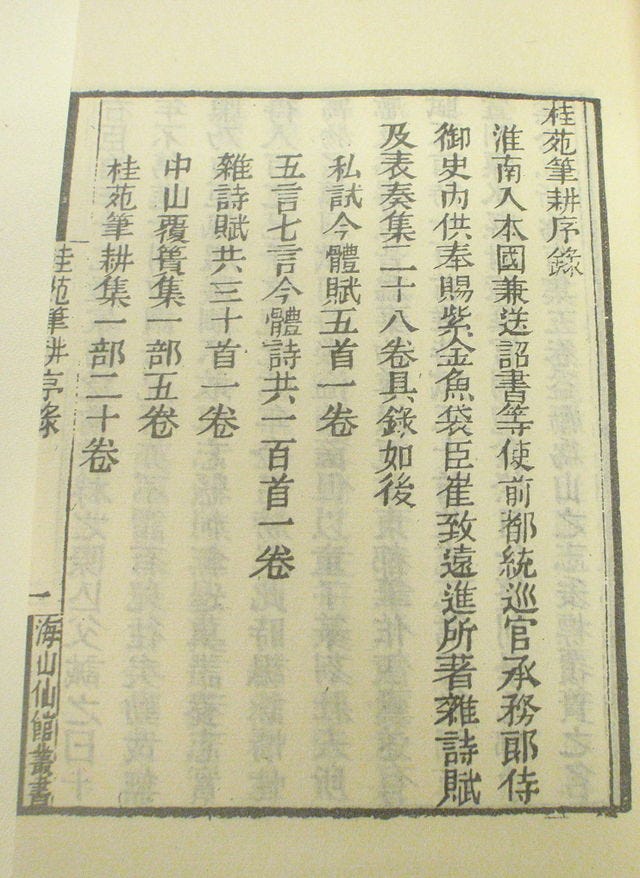 桂苑筆耕序錄
淮南入本國兼送詔書等使前都統巡官承務郎侍
御史內供奉賜紫金魚袋臣崔致遠進所著雜詩賦
及表奏集二十八卷具錄如後
私試今體賦五首一卷
五言七言今體詩共一百首一卷
雜詩賦共三十首一卷
中山覆簣集一部五卷
桂苑筆耕集一部二十卷
桂苑筆耕序錄
一
海山仙館叢書